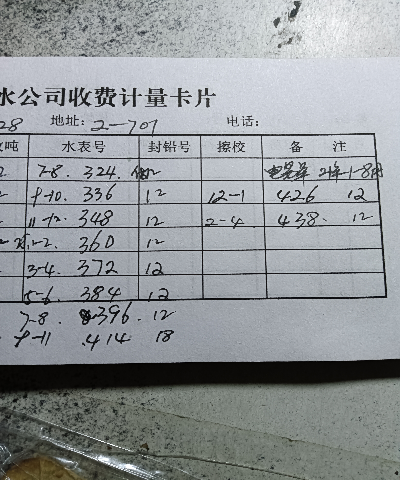 水公司收费计量卡片
28 地址: 2-701 电话:
吨 水表号 封铅号 擦校 备 注
2 7-8. 324. 12 24年1-8月
2 9-10. 336 12 12-1 426 12
11-12. 348 12 2-4. 438. 12
1-2. 360 12
3-4. 372 12
5-6. 384 12
7-8 396. 12
9-11 414 18